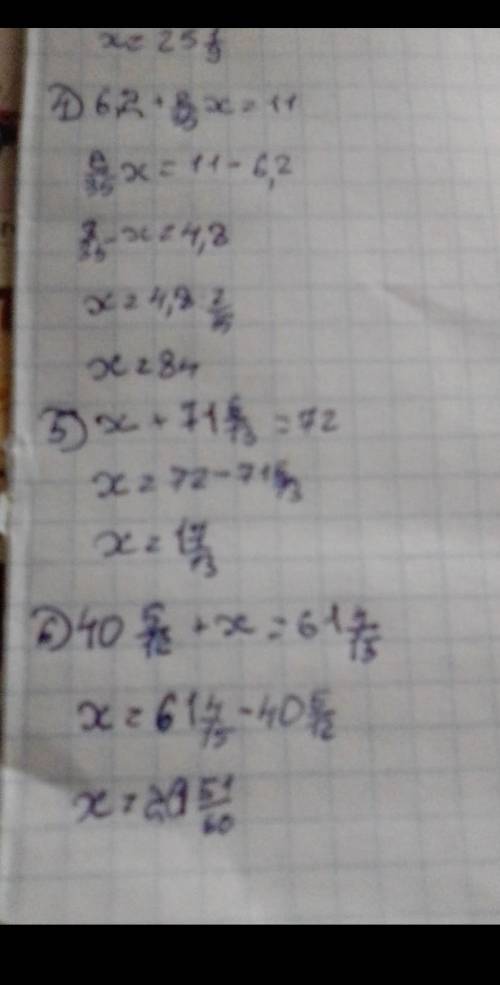 x = 25
4) 6,2 + 8/35 x = 11
8/35 x = 11 - 6,2
8/35 x = 4,8
x = 4,8
x = 84
5) x + 71 6/13 = 72
x = 72 - 71 6/13
x = 7/13
6) 40 5/12 + x = 61 4/15
x = 61 4/15 - 40 5/12
x = 51/60